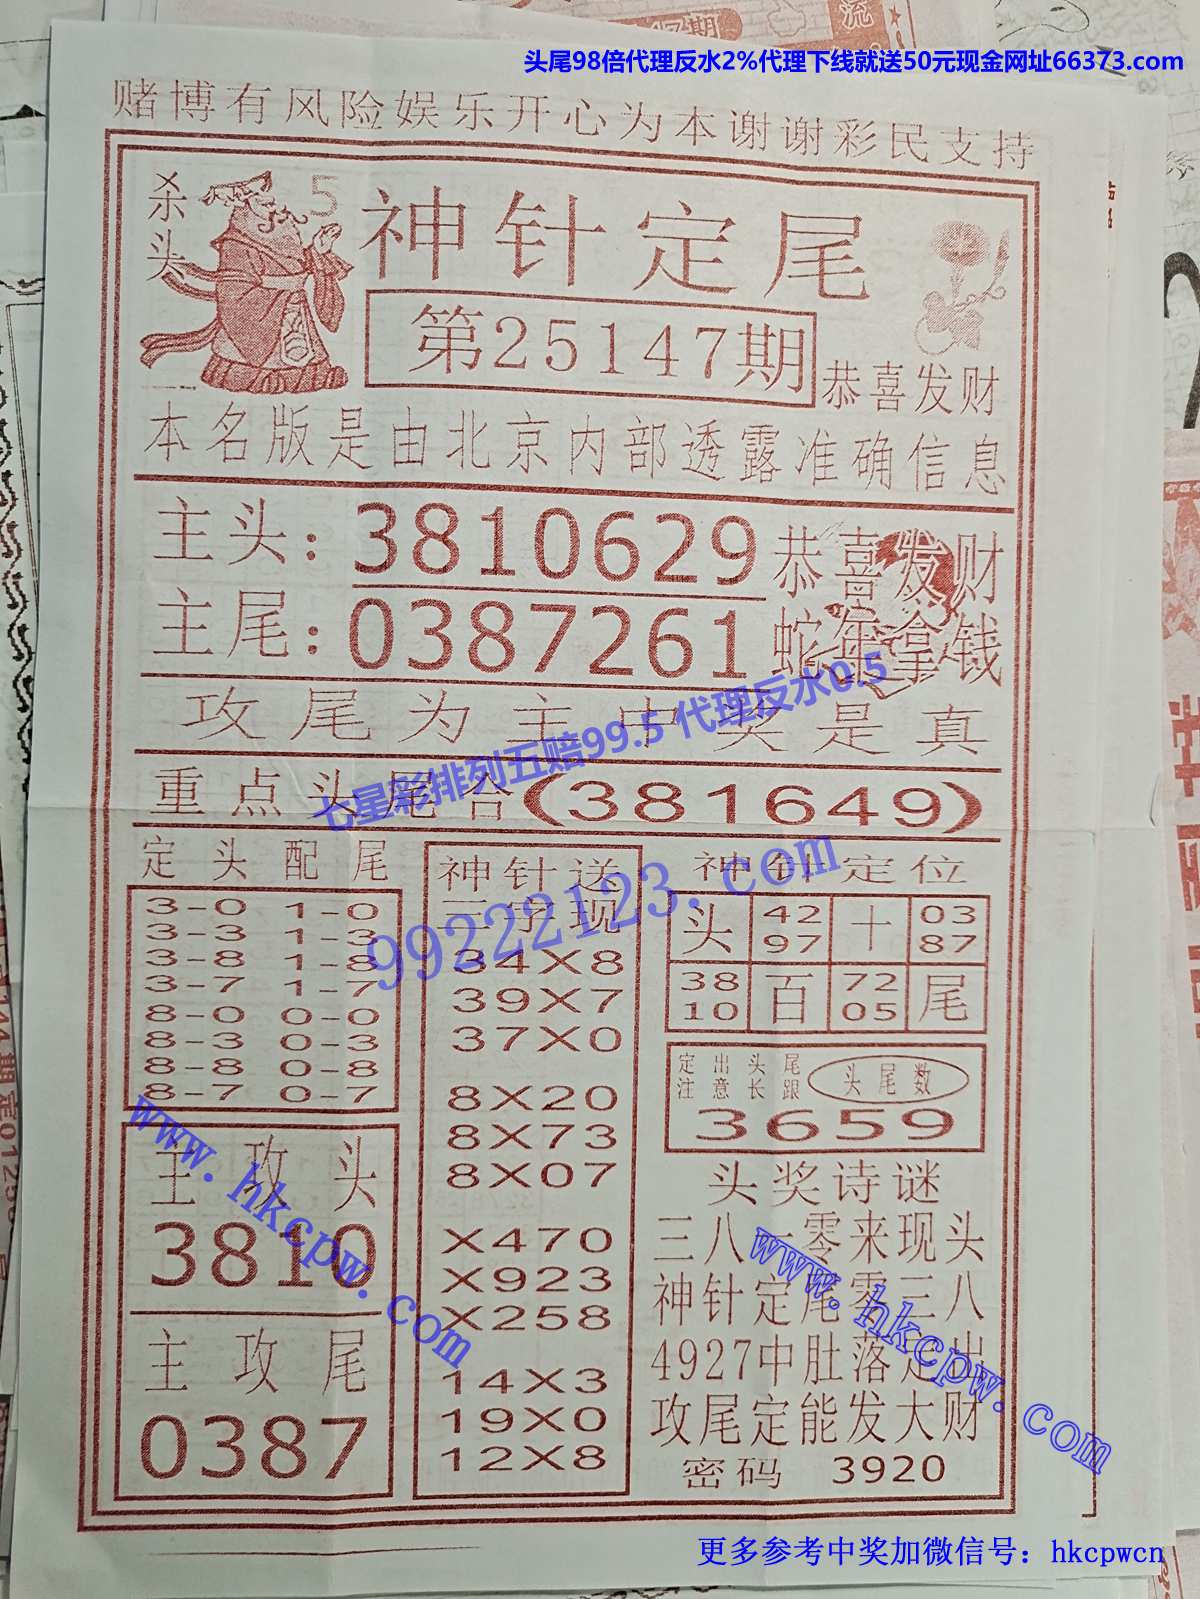 头尾98倍代理反水2%代理下线就送50元现金网址66373.com
赌博有风险娱乐开心为本谢谢彩民支持
杀头
5
神针定尾
第25147期
恭喜发财
本名版是由北京内部透露准确信息
主头:3810629
恭喜发财
主尾:0387261
蛇年拿钱
攻尾为主中奖是真
七星彩排列五赔99.5 代理反水0.5
重点头尾合(381649)
99222123.com
定头配尾
3-0 1-0
3-3 1-3
3-8 1-8
3-7 1-7
8-0 0-0
8-3 0-3
8-8 0-8
8-7 0-7
主攻头
3810
主攻尾
0387
www.hkcpw.com
神针送
三字现
34X8
39X7
37X0
8X20
8X73
8X07
X470
X923
X258
14X3
19X0
12X8
神针定位
头 42 十 03
97 87
38 百 72 尾
10 05
定出头尾
注意长跟
头尾数
3659
头奖诗谜
三八一零来现头
神针定尾零三八
4927中肚落定出
攻尾定能发大财
密码 3920
www.hkcpw.com
更多参考中奖加微信号：hkcpwcn